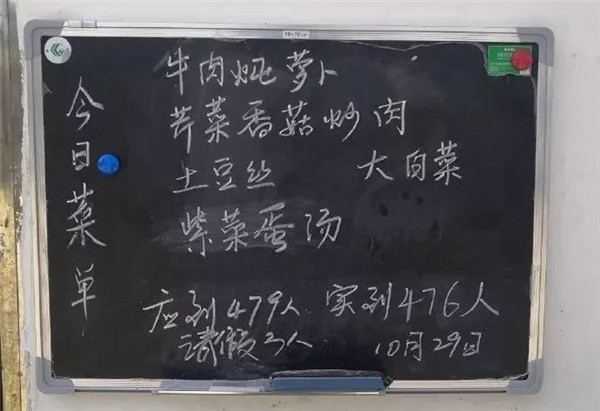 今日菜单
牛肉炖萝卜
芹菜香菇炒肉
土豆丝 大白菜
紫菜蛋汤
应到479人 实到476人
请假3人 10月29日